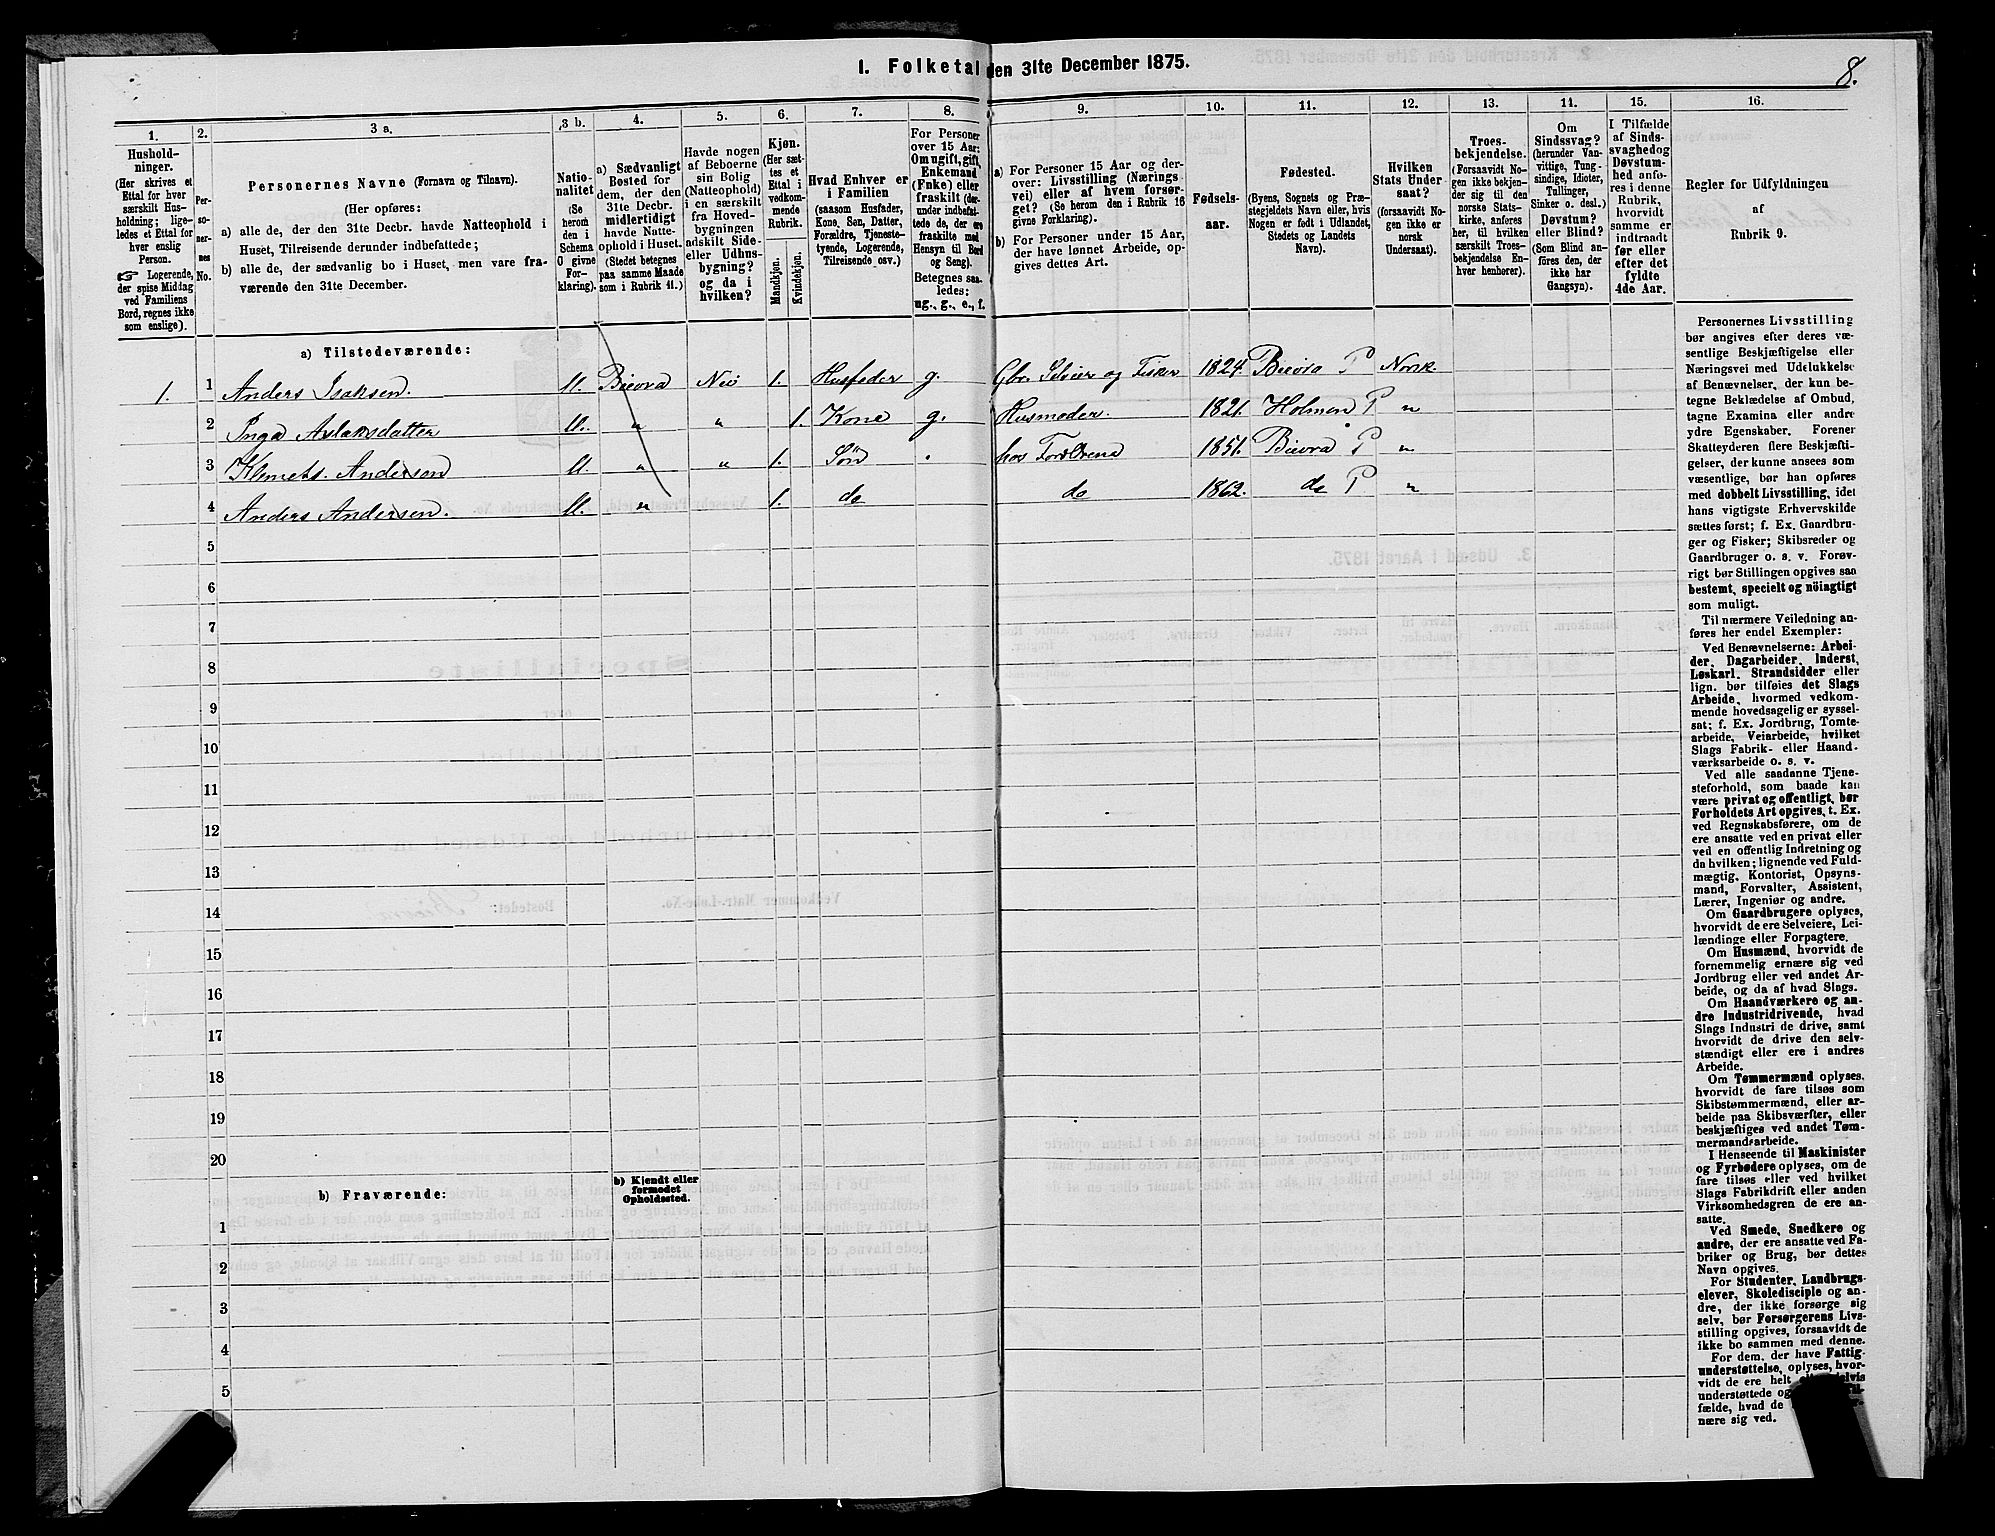 I. Folketal den 31te December 1875.
8.
1.
Hushold-
ninger.
(Her skrives et
Ettal for hver
særskilt Hus-
holdning; lige-
ledes et Ettal for
hver enslig
Person.
☞ Logerende,
der spise Middag
ved Familiens
Bord, regnes ikke
som enslige).
2.
Per-
so-
ner-
nes
No.
3 a.
Personernes Navne (Fornavn og Tilnavn).
(Her opføres:
a) alle de, der den 31te Decbr. havde Natteophold i
Huset, Tilreisende derunder indbefattede;
b) alle de, der sædvanlig bo i Huset, men vare fra-
værende den 31te December.
3 b.
Natio-
nalitet
(Se
herom
den i
Schema
O givne
For-
klaring).
4.
a) Sædvanligt
Bosted for
dem, der den
31te Decbr.
midlertidigt
havde Natte-
ophold i Huset.
(Stedet betegnes
paa samme Maade
som i Rubrik 11.)
5.
Havde nogen
af Beboerne
sin Bolig
(Natteophold)
i en særskilt
fra Hoved-
bygningen
adskilt Side-
eller Udhus-
bygning?
og da i
hvilken?
6.
Kjøn.
(Her sæt-
tes et
Ettal i
vedkom-
mende
Rubrik.
Mandkjøn.
Kvindekjøn.
7.
Hvad Enhver er
i Familien
(saasom Husfader,
Kone, Søn, Datter,
Forældre, Tjeneste-
tyende, Logerende,
Tilreisende osv.)
8.
For Personer
over 15 Aar:
Om ugift, gift,
Enkemand
(Enke) eller
fraskilt (der-
under indbefat-
tede de, der ere
fraskilte med
Hensyn til Bord
og Seng).
Betegnes saa-
ledes:
ug., g., e., f.
9.
a) For Personer 15 Aar og der-
over: Livsstilling (Nærings-
vei) eller af hvem forsør-
get? (Se herom den i Rubrik 16
givne Forklaring).
b) For Personer under 15 Aar,
der have lønnet Arbeide, op-
gives dettes Art.
10.
Fødsels-
aar.
11.
Fødested.
(Byens, Sognets og Præ-
stegjeldets Navn eller, hvis
Nogen er født i Udlandet,
Stedets og Landets
Navn).
12.
Hvilken
Stats Under
saat?
(forsaavidt No-
gen ikke er
norsk
Undersaat).
13.
Troes-
bekjendelse.
(Forsaavidt No-
gen ikke bekjen-
der sig til den
norske Stats-
kirke, anføres
her, til hvilken
særskilt Troes-
bekjendelse En-
hver henhører).
14.
Om
Sindssvag?
(herunder Van-
vittige, Tung-
sindige, Idioter,
Tullinger,
Sinker o. desl.)
Døvstum?
eller Blind?
(Som Blind an-
føres den, der
ikke har
Gangsyn).
15.
I Tilfælde
af Sinds-
svaghed og
Døvstum-
hed anfø-
res i denne
Rubrik,
hvorvidt
samme er
indtraadt
før eller
efter det
fyldte
4de Aar.
16.
Regler for Udfyldningen
af
Rubrik 9.
a) Tilstedeværende:
1. 1 Anders Isaksen. Bievra Nei 1. Husfader g. Gbr. Selveier og Fisker 1824. Bievra P Norsk
2 Inga Aslaksdatter " " 1. Kone g. Husmoder. 1821. Holmen P "
3 Klemets. Andersen " " 1. Søn hos Forældrene 1851. Bievra P "
4 Anders Andersen. " 1. do do 1862. do P "
5
6
7
8
9
10
11
12
13
14
15
16
17
18
19
20
b) Fraværende:
b) Kjendt eller
formodet
Opholdssted.
1
2
3
4
5
Personernes Livsstilling
bør angives efter deres væ-
sentlige Beskjæftigelse eller
Næringsvei med Udelukkelse
af Benævnelser, der kun be-
tegne Beklædelse af Ombud,
tagne Examina eller andre
ydre Egenskaber. Forener
Skatteyderen flere Beskjæfti-
gelser, der kunne ansees som
væsentlige, bør han opføres
med dobbelt Livsstilling, idet
hans vigtigste Erhvervskilde
sættes først; f. Ex. Gaardbru-
ger og Fisker; Skibsreder og
Gaardbruger o. s. v. Forøv-
rigt bør Stillingen opgives saa
bestemt, specielt og nøiagtigt
som muligt.
Til nærmere Veiledning an-
føres her endel Exempler:
Ved Benævnelserne: Arbei-
der, Dagarbeider, Inderst,
Løskarl, Strandsidder eller
lign. bør tilføies det Slags
Arbeide, hvormed vedkom-
mende hovedsagelig er syssel-
sat; f. Ex. Jordbrug, Tomte-
arbeide, Veiarbeide, hvilket
Slags Fabrik- eller Haand-
værksarbeide o. s. v.
Ved alle saadanne Tjene-
steforhold, som baade kan
være privat og offentligt, bør
Forholdets Art opgives, t. Ex.
ved Regnskabsførere, om de
ere ansatte ved en privat eller
ved en offentlig Indretning og
da hvilken; lignende ved Fuld-
mægtig, Kontorist, Opsyns-
mand, Forvalter, Assistent,
Lærer, Ingeniør og andre.
Om Gaardbrugere oplyses,
hvorvidt de ere Selveiere, Lei-
lændinge eller Forpagtere.
Om Husmænd, hvorvidt de
fornemmelig ernære sig ved
Jordbrug eller ved andet Ar-
beide, og da af hvad Slags.
Om Haandværkere og an-
dre Industridrivende, hvad
Slags Industri de drive, samt
hvorvidt de drive den selv-
stændigt eller ere i andres
Arbeide.
Om Tømmermænd oplyses,
hvorvidt de fare tilsøs som
Skibstømmermænd, eller ar-
beide paa Skibsværfter, eller
beskjæftiges ved andet Tøm-
mermandsarbeide.
I Henseende til Maskinister
og Fyrbødere oplyses, om de
fare tilsøs eller ved hvilket
Slags Fabrikdrift eller anden
Virksomhedsgren de ere an-
satte.
Ved Smede, Snedkere og
andre, der ere ansatte ved Fa-
briker og Brug, bør dettes
Navn opgives.
For Studenter, Landbrugs-
elever, Skoledisciple og an-
dre, der ikke forsørge sig
selv, bør Forsørgerens Livs-
stilling opgives, forsaavidt de
ikke bo sammen med denne.
For dem, der have Fattig-
understøttelse, oplyses, hvor-
vidt de ere helt
understøttede og
fælde, hvad de
nære sig ved.